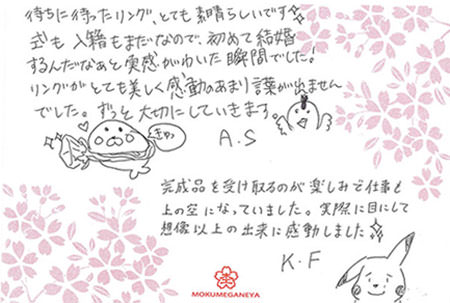 待ちに待ったリング、とても素晴らしいです
式も入籍もまだなので、初めて結婚
するんだなあと実感がわいた瞬間でした!
リングがとても美しく感動のあまり言葉が出ません
でした。ずっと大切にしていきます。
きゅっ
A.S
完成品を受け取るのが楽しみで仕事も
上の空になっていました。実際に目にして
想像以上の出来に感動しました
K.F
MOKUMEGANEYA